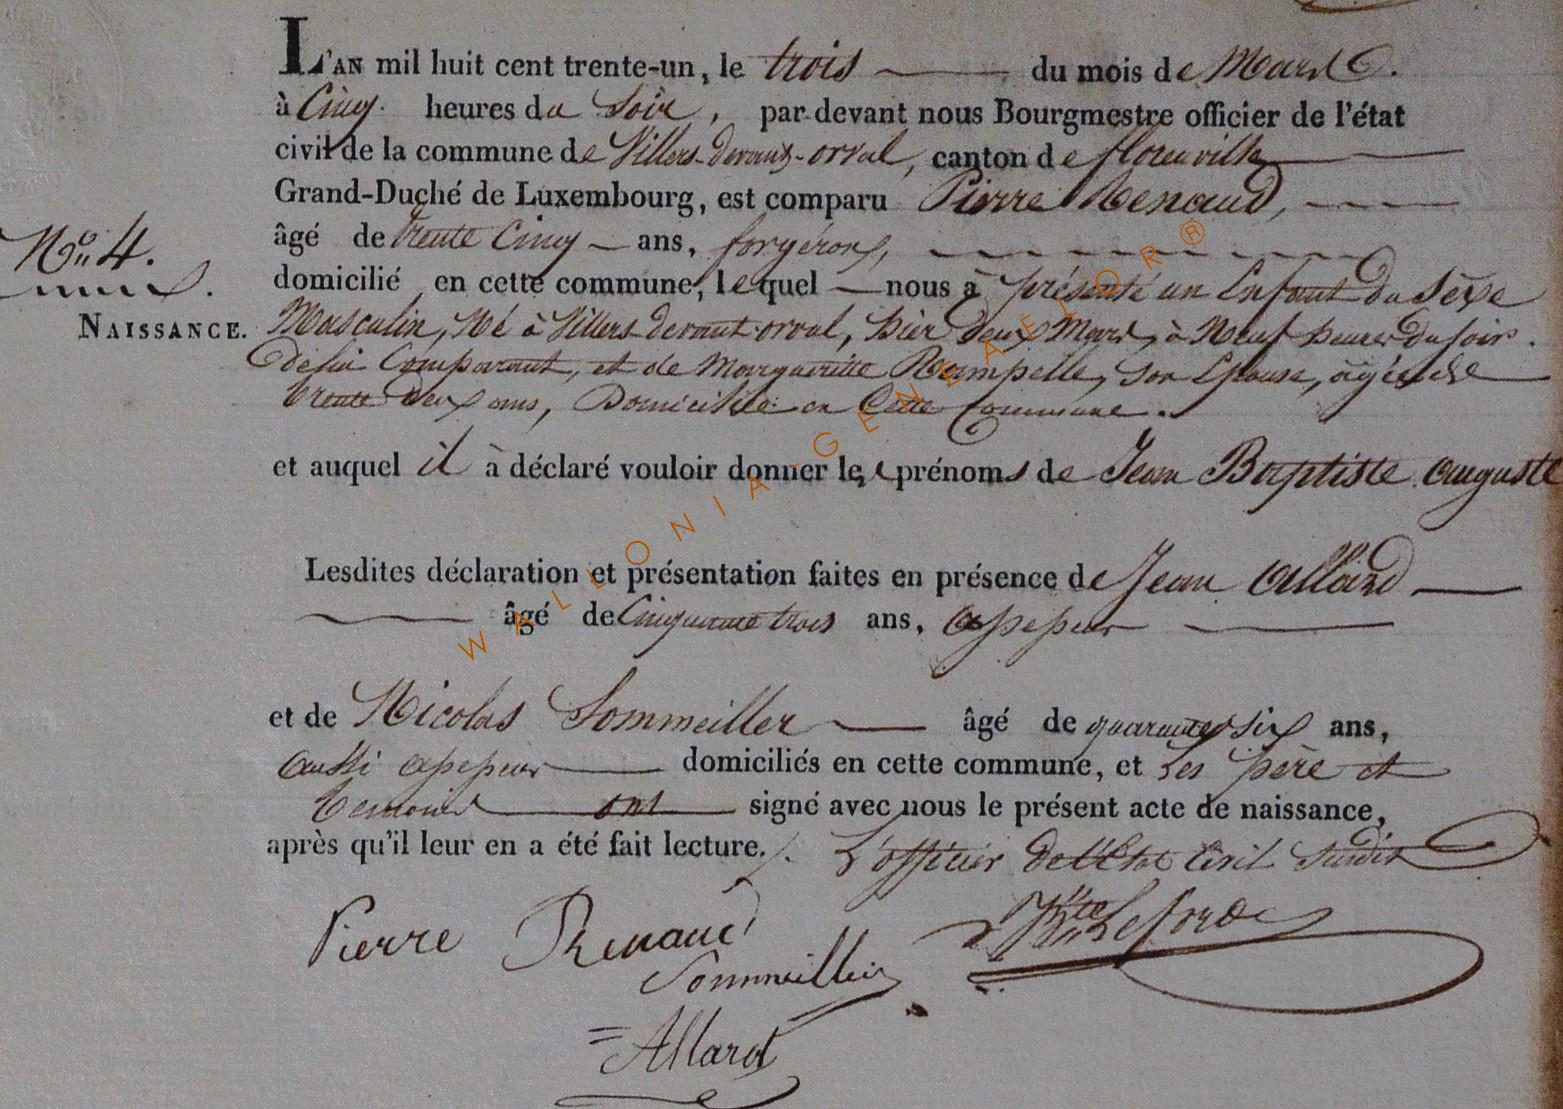 L'AN mil huit cent trente-un, le trois du mois de Mars
à Cinq heures du Soir, par devant nous Bourgmestre officier de l'état
civil de la commune de Villers-devant-orval, canton de florenville
Grand-Duché de Luxembourg, est comparu Pierre Renaud,
Nº 4.
âgé de trente Cinq ans, forgéron,
domicilié en cette commune, lequel nous à présenté un Enfant du Sèxe
NAISSANCE.
Masculin, Né à Villers-devant-orval, hier deux Mars, à Neuf heures du soir.
de lui Comparant, et de Margueritte Rampelle, son Epouse, agée de
trente deux ans, Domiciliée en Cette Commune.
et auquel il à déclaré vouloir donner les prénoms de Jean Baptiste auguste
Lesdites déclaration et présentation faites en présence de Jean allard
âgé de Cinquante trois ans,
et de Nicolas Sommeiller âgé de quarante six ans,
aussi domiciliés en cette commune, et les père et
temoins ont signé avec nous le présent acte de naissance,
après qu'il leur en a été fait lecture. L'officier de l'Etat Civil susdit
Pierre Renaud
Sommeiller
Allard
WALLONIA-GENEALOR®